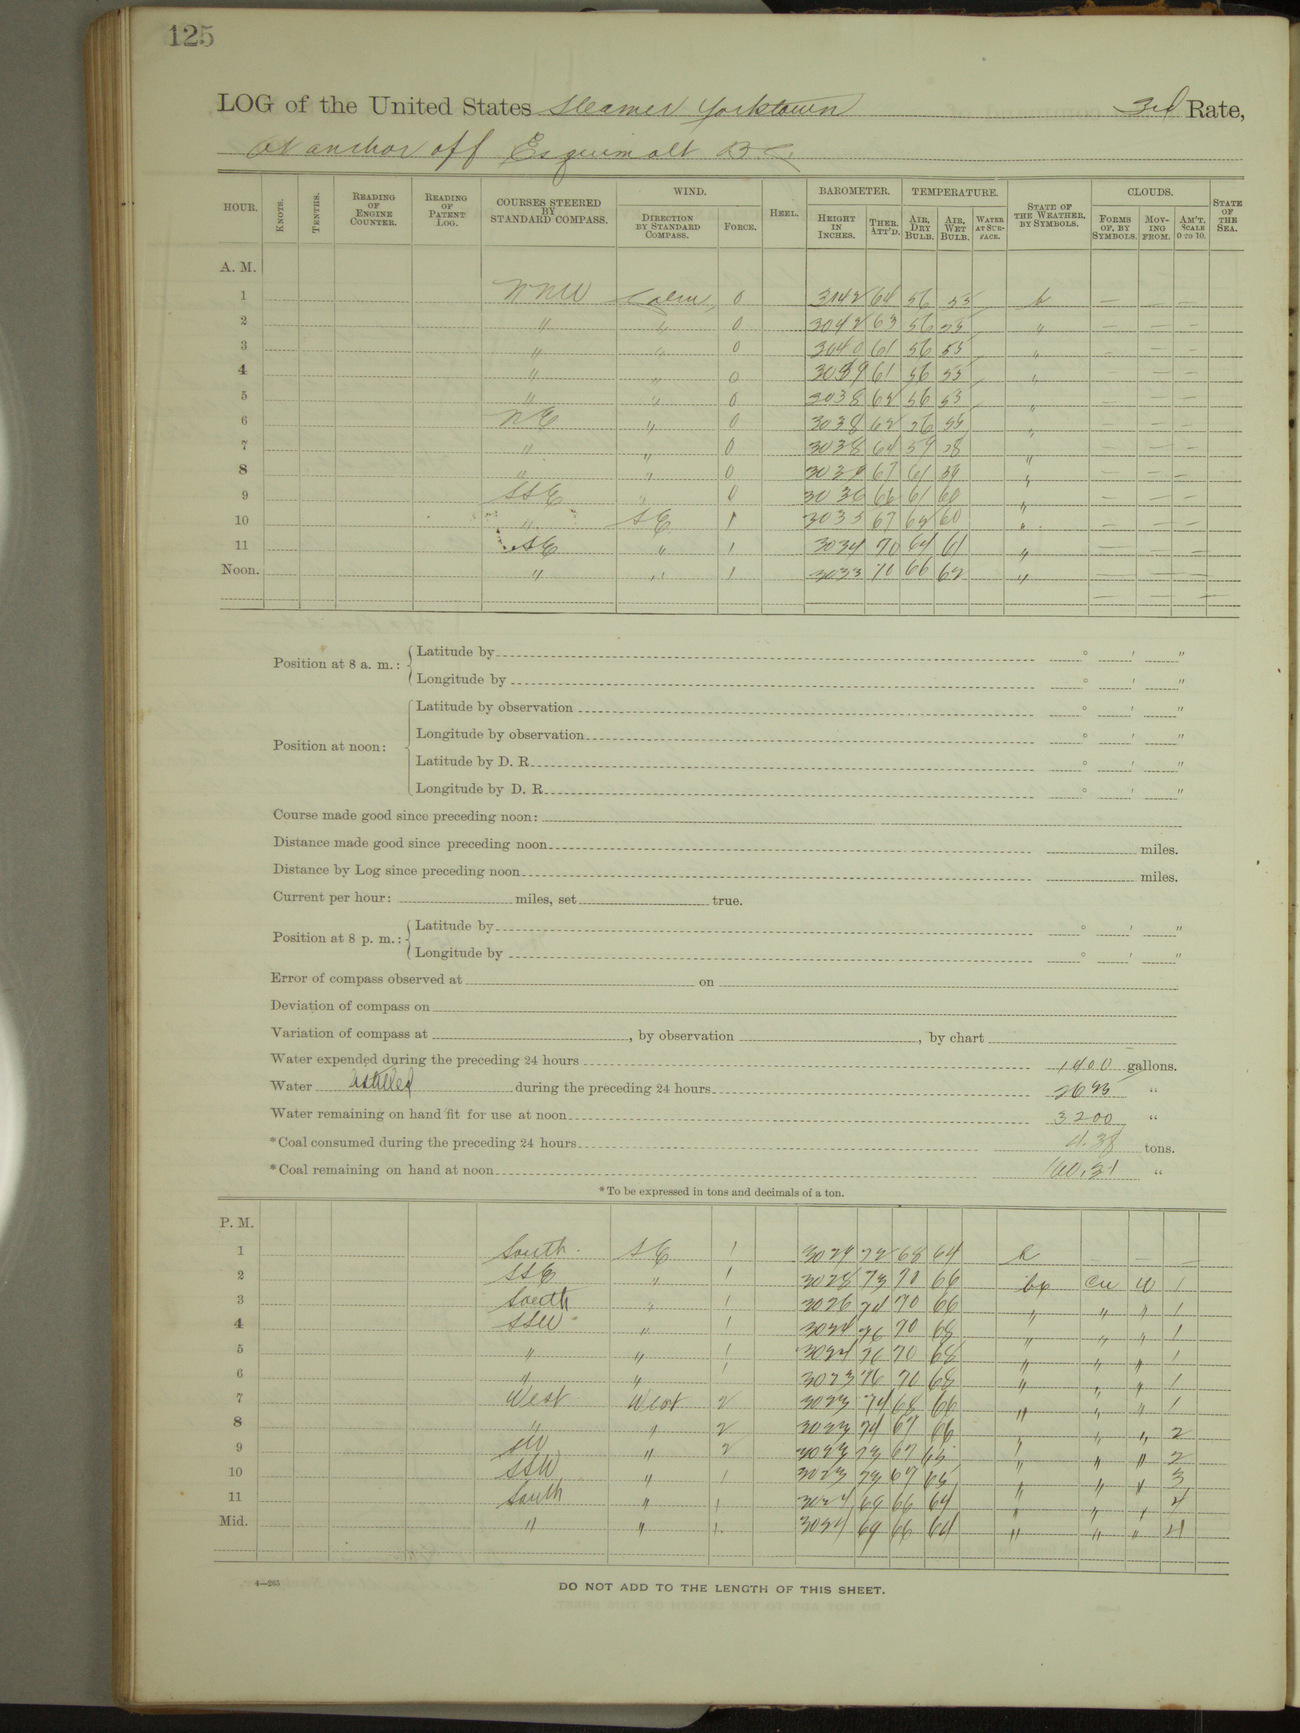 125
LOG of the United States Steamer Yorktown 3rd Rate,
At anchor off Esquimalt B C
HOUR. KNOTS. TENTHS. READING OF ENGINE COUNTER. READING OF PATENT LOG. COURSES STEERED BY STANDARD COMPASS. WIND. DIRECTION BY STANDARD COMPASS. FORCE. HEEL. BAROMETER. HEIGHT IN INCHES. THER. ATT'D. TEMPERATURE. AIR, DRY BULB. AIR, WET BULB. WATER AT SURFACE. STATE OF THE WEATHER, BY SYMBOLS. CLOUDS. FORMS OF, BY SYMBOLS. MOVING FROM. AM'T. SCALE 0 TO 10. STATE OF THE SEA.
A. M.
1 NNW Calm 0 3042 64 56 55 b — — —
2 " " 0 3042 63 56 55 " — — —
3 " " 0 3040 61 56 55 " — — —
4 " " 0 3039 61 56 55 " — — —
5 " " 0 3038 62 56 55 " — — —
6 NE " 0 3038 62 56 55 " — — —
7 " " 0 3038 64 59 58 " — — —
8 " " 0 3037 67 61 59 " — — —
9 SSE " 0 3036 66 61 60 " — — —
10 " SE 1 3035 67 62 60 " — — —
11 SE " 1 3034 70 64 61 " — — —
Noon. " " 1 3033 70 66 62 " — — —
— — —
Position at 8 a. m.: Latitude by ° ' "
Longitude by ° ' "
Position at noon: Latitude by observation ° ' "
Longitude by observation ° ' "
Latitude by D. R. ° ' "
Longitude by D. R. ° ' "
Course made good since preceding noon:
Distance made good since preceding noon miles.
Distance by Log since preceding noon miles.
Current per hour: miles, set true.
Position at 8 p. m.: Latitude by ° ' "
Longitude by ° ' "
Error of compass observed at on
Deviation of compass on
Variation of compass at , by observation , by chart
Water expended during the preceding 24 hours 1400 gallons.
Water distilled during the preceding 24 hours "
Water remaining on hand fit for use at noon 3200 "
*Coal consumed during the preceding 24 hours 4.38 tons.
*Coal remaining on hand at noon "
*To be expressed in tons and decimals of a ton.
P. M.
1 South SE 1 3029 72 68 64 b — —
2 SSE " 1 3028 73 70 66 bc cu W 1
3 South " 1 3026 74 70 66 " " " 1
4 SSW " 1 3024 76 70 68 " " " 1
5 " " 1 3024 76 70 68 " " " 1
6 " " 1 3023 76 70 68 " " " 1
7 West West 2 3023 74 68 66 " " " 1
8 " " 2 3023 74 67 66 " " " 2
9 SW " 2 3023 73 67 65 " " " 2
10 SSW " 1 3023 73 67 65 " " " 3
11 South " 1 3024 69 66 64 " " " 4
Mid. " " 1 3024 69 66 64 " " " 4
4—265
DO NOT ADD TO THE LENGTH OF THIS SHEET.